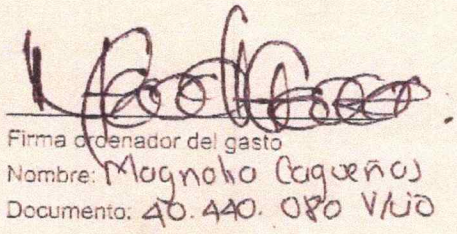 Firma ordenador del gasto
Nombre: Magnolia Caqueños
Documento: 40.440.080 V/cio